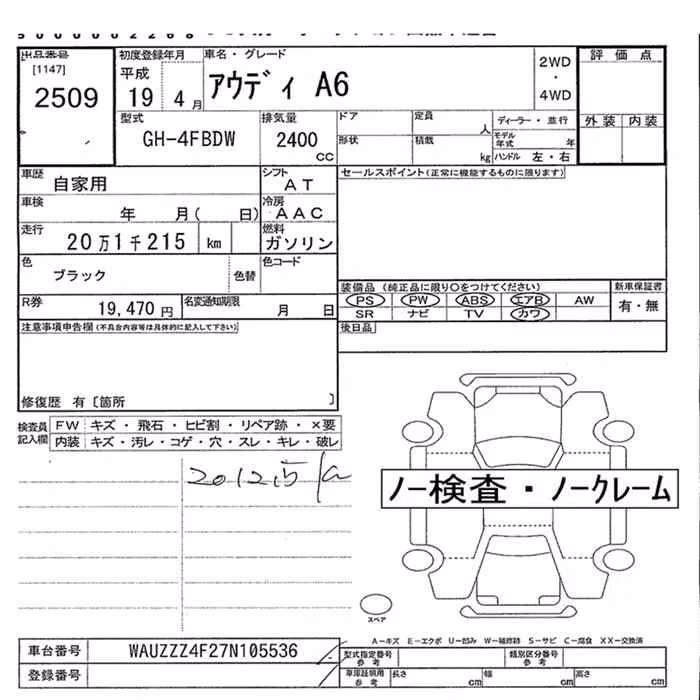 出品番号 初度登録年月 車名・グレード 評価点
[1147] 平成 アウディ A6 2WD
2509 19 4月 ・ 4WD
型式 排気量 ドア 定員 人 ディーラー・並行 外装 内装
GH-4FBDW 2400 cc 形状 積載 kg モデル年式 年
ハンドル 左・右
車歴 自家用 シフト AT セールスポイント(正常に機能するものに限ります)
車検 年 月( 日) 冷房 AAC
走行 20万1千215 km 燃料 ガソリン
色 ブラック 色替 色コード
装備品(純正品に限り○をつけてください) 新車保証書
PS PW ABS エアB AW 有・無
SR ナビ TV カワ
R券 19,470円 名変通知期限 月 日
後日品
注意事項申告欄(不具合内容等は具体的に記入して下さい)
修復歴 有〔箇所 〕
検査員記入欄 FW キズ・飛石・ヒビ割・リペア跡・×要
内装 キズ・汚レ・コゲ・穴・スレ・キレ・破レ
ノー検査・ノークレーム
スペア
A−キズ E−エクボ U−凹み W−補修跡 S−サビ C−腐食 XX−交換済
車台番号 WAUZZZ4F27N105536 型式指定番号参考 類別区分番号参考
登録番号 車庫証明用参考 長さ cm 幅 cm 高さ cm